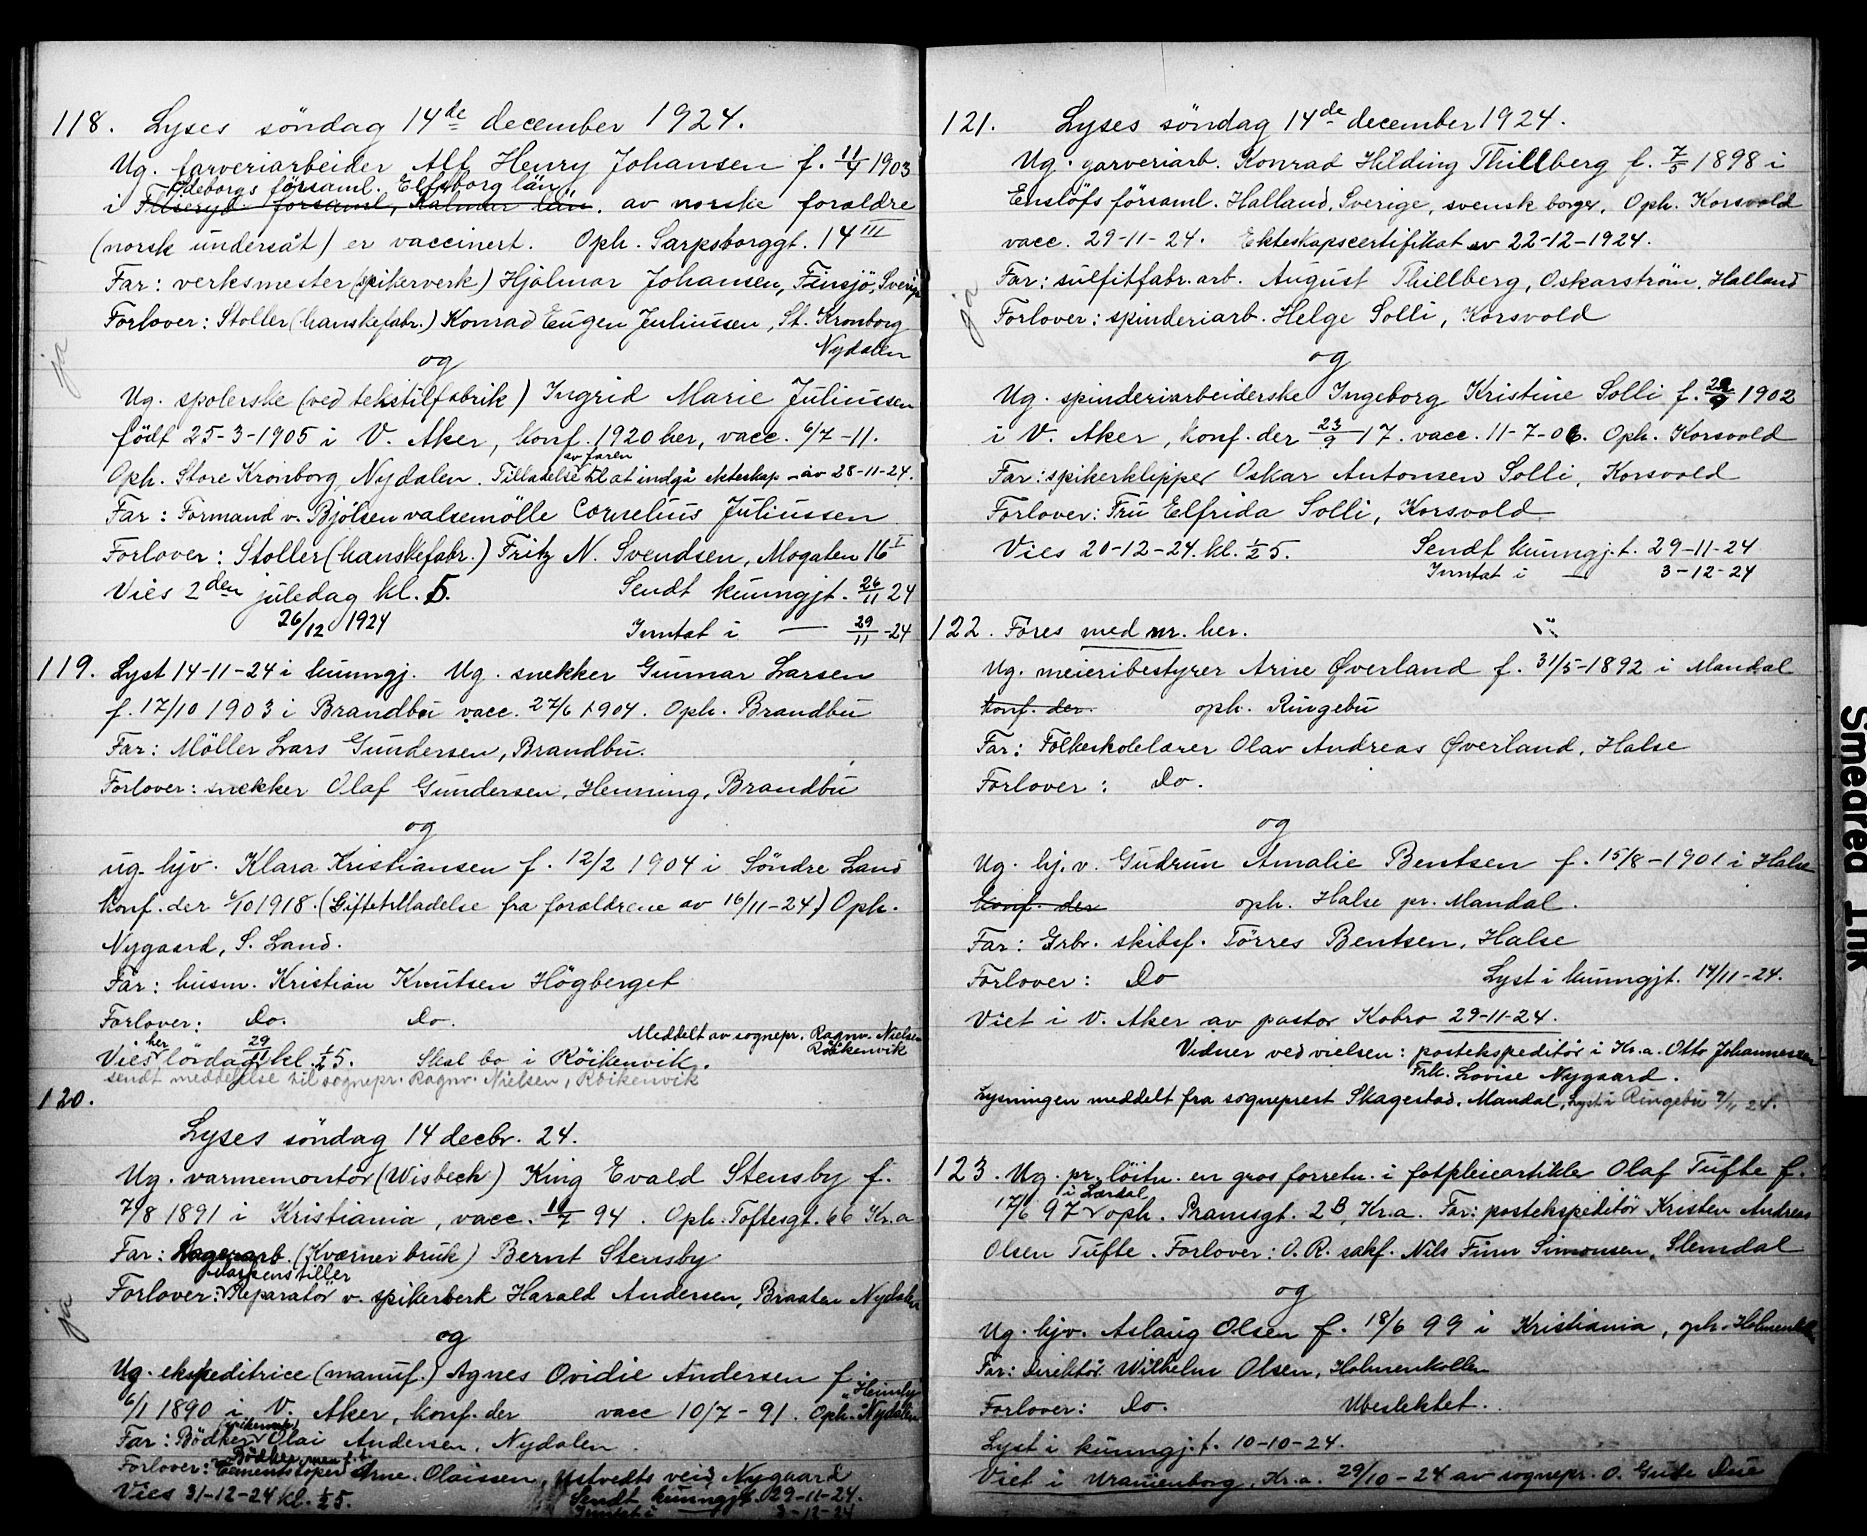 118. Lyses söndag 14de december 1924.
Ug. farveriarbeider Alf Henry Johansen f. 11/4 1903
Ödeborgs församl. Elfsborg län
i Fliseryd församl, Kalmar län. av norske forældre
(norsk undersåt) er vaccinert. Oph. Sarpsborggt. 14 III
Far: verksmester (spikerverk) Hjalmar Johansen, Finsjö, Sverige
Forlover: Stoller (hanskefabr.) Konrad Eugen Juliussen, St. Kronborg
Nydalen
og
Ug. spolerske (ved tekstilfabrik) Ingrid Marie Juliussen
født 25-3-1905 i V. Aker, konf. 1920 her, vacc. 6/7 -11.
av faren
Oph. Store Kronborg, Nydalen. Tilladelse til at indgå ekteskap - av 28-11-24.
Far: Formand v. Bjölsen valsemölle Cornelius Juliussen
Forlover: Stoller (hanskefabr.) Fritz N. Svendsen, Mogaten 16 I
Vies 2den juledag kl. 5. Sendt kunngjt. 26/11 24
26/12 1924 Inntat i — 29/11 -24
ja
119. Lyst 14-11-24 i kunngj. Ug. snekker Gunnar Larsen
f. 17/10 1903 i Brandbu vacc. 27/6 1904. Oph. Brandbu
Far: Möller Lars Gundersen, Brandbu.
Forlover: snekker Olaf Gundersen, Henning, Brandbu
og
ug. hjv. Klara Kristiansen f. 12/2 1904 i Söndre Land
konf. der 6/10 1918. (Giftetilladelse fra forældrene av 16/11-24.) Oph.
Nygaard, S. Land.
Far: husm. Kristian Knutsen Högberget
Forlover: Do. Do.
Meddelt av sognepr. Ragnv. Nielsen
Röikenvik
her
Vies lördag 29/11 kl. ½5. Skal bo i Röikenvik.
sendt meddelelse til sognepr. Ragnv. Nielsen, Röikenvik
120.
Lyses söndag 14 decbr. 24.
Ug. varmemontör (Wisbech) King Evald Stensby f.
7/8 1891 i Kristiania, vacc. 10/7 94. Oph. Toftesgt. 66 Kr.a
Far: Lagerarb. (Kværner bruk) Bernt Stensby
Maskenstiller
Forlover: Reparatör v. spikerverk Harald Andersen, Braaten Nydalen
ja
og
Ug. ekspeditrice (manuf.) Agnes Ovidie Andersen f.
"Heimly"
6/1 1890 i V. Aker, konf. der vacc 10/7 - 91. Oph. Nydalen
(spikerverk)
Far: Bödker Olai Andersen, Nydalen.
Bödker, men f.t.
Forlover: Cementstöper Arne Olaissen, Ustvedts vei, Nygaard
Vies 31-12-24 kl. ½5. Sendt kunngjt. 29-11-24.
Inntat i 3-12-24
121. Lyses söndag 14de december 1924.
Ug. garveriarb. Konrad Hilding Thillberg f. 7/5 1898 i
Enslöfs församl. Halland, Sverige, svensk borger. Oph. Korsvold
vacc. 29-11-24. Ekteskapscertifikat av 22-12-1924.
Far: sulfitfabr. arb. August Thillberg, Oskarström, Halland
Forlover: spinderiarb. Helge Solli, Korsvold
ja
og
Ug. spinderiarbeiderske Ingeborg Kristine Solli f. 1902
i V. Aker, konf. der 23/9 17. vacc. 11-7-06. Oph. Korsvold
Far: spikerklipper Oskar Antonsen Solli, Korsvold
Forlover: Fru Elfrida Solli, Korsvold
Vies 20-12-24. kl. ½5. Sendt kunngj.t. 29-11-24
Inntat i — 3-12-24
122. Föres med nr. her.
Ug. meieribestyrer Arne Øverland f. 31/5-1892 i Mandal
konf. der. oph. Ringebu
Far: Folkeskolelærer Olav Andreas Øverland, Halse
Forlover: Do.
og
Ug. hj.v. Gudrun Amalie Bentsen f. 15/8-1901 i Halse
konf. der oph. Halse pr. Mandal.
Far: Grbr. skibsf. Törres Bentsen, Halse
Forlover: Do Lyst i kunngjt. 14/11-24.
Viet i V. Aker av pastor Kobro 29-11-24.
Vidner ved vielsen: postekspeditör i Kr.a. Otto Johannessen
Frk. Lovise Nygaard.
Lysningen meddelt fra sogneprest Skagestad, Mandal, Lyst i Ringebu 9/11 24.
123. Ug. pr. löitn. en gros forretn. i fotpleieartikler Olaf Tufte f.
i Lærdal
17/6 97 oph. Pramsgt. 2B, Kr.a. Far: postekspeditör Kristen Andreas
Olsen Tufte. Forlover: O. R. sakf. Nils Finn Simonsen, Slemdal
og
Ug. hjv. Aslaug Olsen f. 18/6 99 i Kristiania, oph. Holmenkollen
Far: Direktör Wilhelm Olsen, Holmenkollen
Forlover: Do. Ubeslektet.
Lyst i kunngj.t. 10-10-24.
Viet i Uranienborg, Kr.a. 29/10-24 av sognepr. O. Gude Due
Smeared Ink